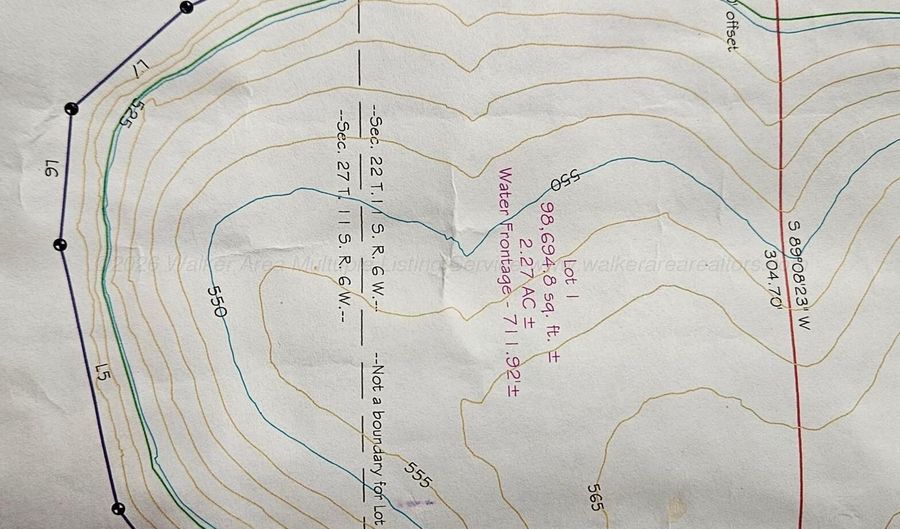 offset
L7
525
L6
--Sec. 22 T. 11 S. R. 6 W.--
--Sec. 27 T. 11 S. R. 6 W.--
550
Lot 1
98,694.8 sq. ft. ±
2.27 AC ±
Water Frontage - 711.92'±
S 89°08'23" W
304.70'
550
L5
--Not a boundary for Lot
555
565